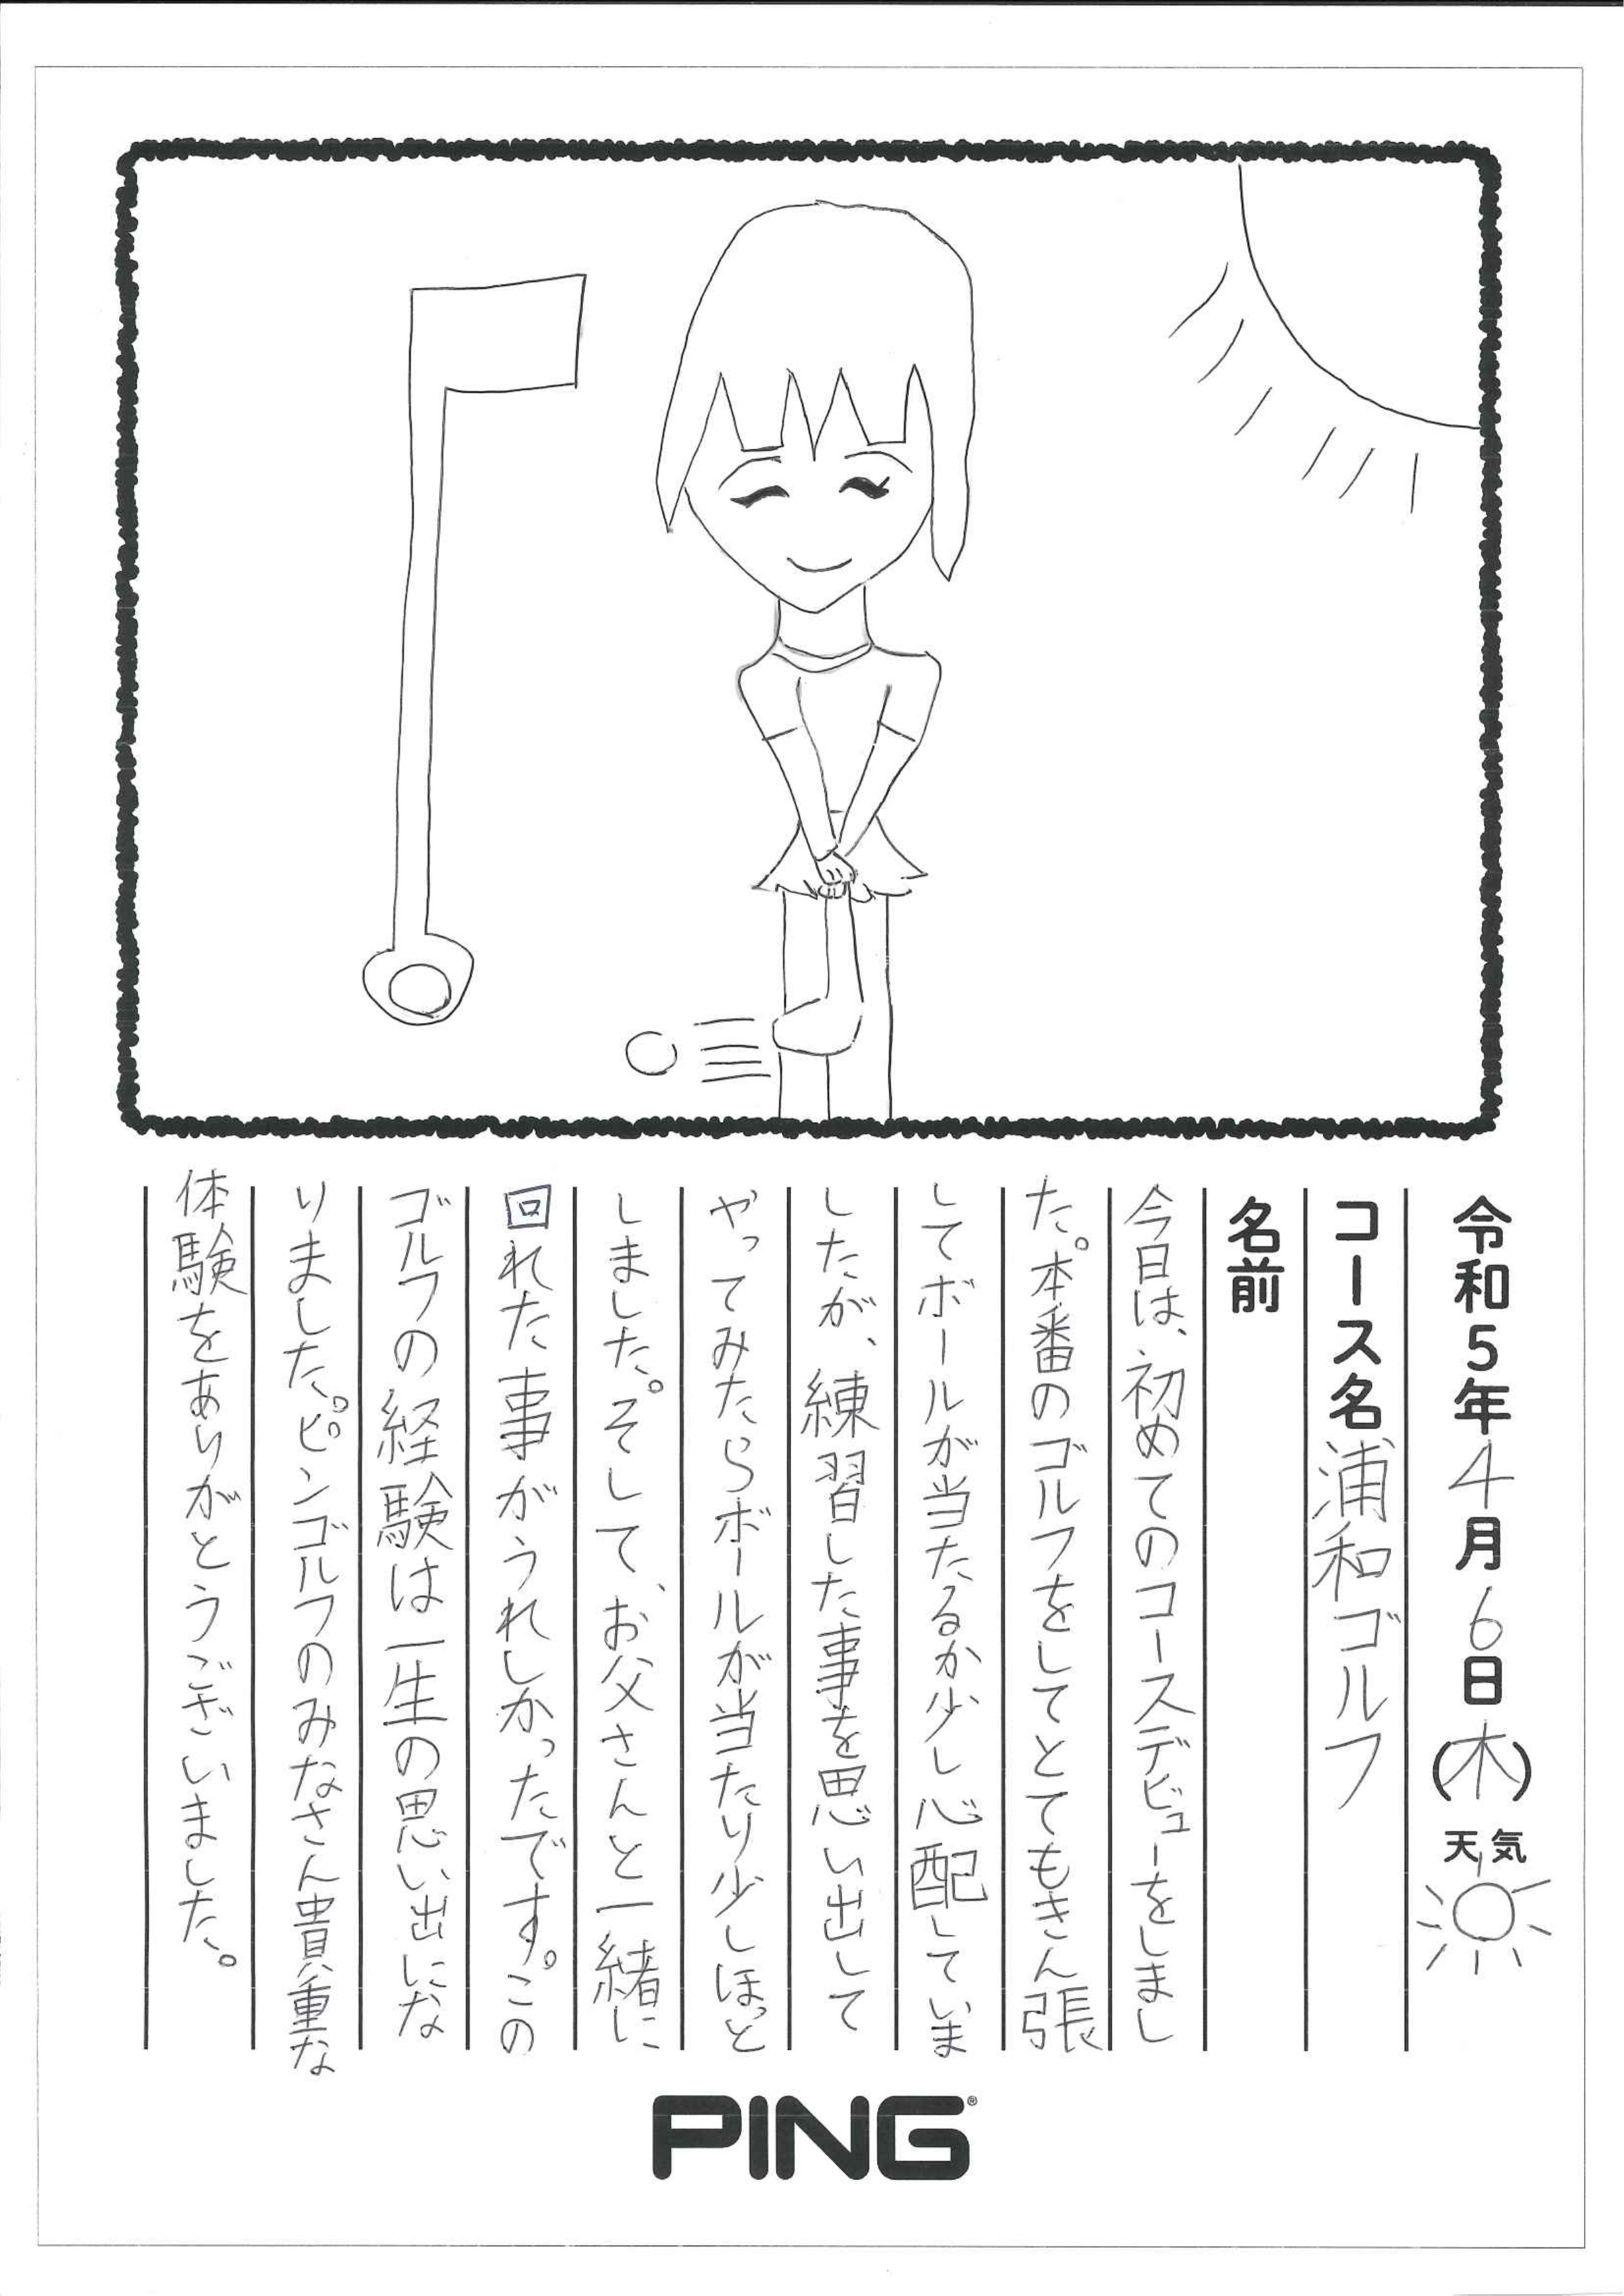 令和5年4月6日(木)天気
コース名 浦和ゴルフ
名前
今日は、初めてのコースデビューをしまし
た。本番のゴルフをしてとてもきん張
してボールが当たるか少し心配していま
したが、練習した事を思い出して
やってみたらボールが当たり少しほっと
しました。そして、お父さんと一緒に
回れた事がうれしかったです。この
ゴルフの経験は一生の思い出にな
りました。ピンゴルフのみなさん貴重な
体験をありがとうございました。
PING®